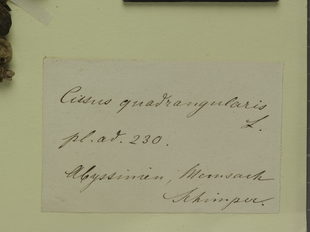 Cissus quadrangularis
L.
pl. ad. 230.
Abyssinien, Memsach
Schimper.